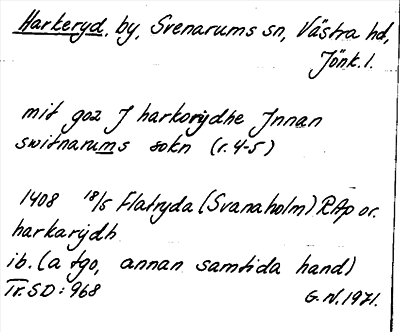 Harkeryd, by, Svenarums sn, Västra hd,
Jönk. l.
mit goz J harkorÿdhe Jnnan
switnarums sokn (r. 4-5)
1408 18/5 Flatryda (Svanaholm) RAp or.
harkarÿdh
ib. (a tgo, annan samtida hand)
Tr. SD: 968
G.N. 1971.